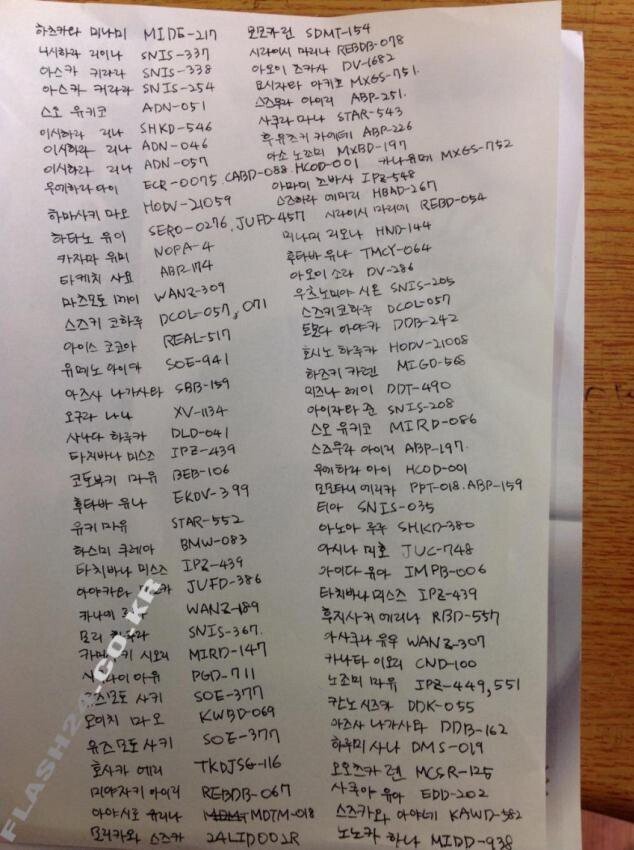 하즈키타 미나미 MIDE-217
니시하라 리이나 SNIS-337
아스카 키라라 SNIS-338
아스카 키라라 SNIS-254
스오 유키코 ADN-051
이시하라 리나 SHKD-546
이시하라 리나 ADN-046
이시하라 리나 ADN-057
우에하라 아이 ECR-0075. CABD-088. HCOD-001
하마사키 마오 HODV-21059
하타노 유이 SERO-0276, JUFD-457
카자마 유미 NOPA-4
타케치 사요 ABR-174
마츠모토 메이 WANZ-309
스즈키 코하루 DCOL-057, 071
아이스 코코아 REAL-517
유메노 아이카 SOE-941
아즈사 나가사타 SBB-159
오구라 나나 XV-1134
사나다 하루카 DLD-041
타치바나 미스즈 IPZ-439
코토부키 마유 BEB-106
후타바 유나 EKDV-399
유키 마유 STAR-552
하스미 쿠레아 BMW-083
타치바나 미스즈 IPZ-439
아야카와 JUFD-386
카나에 WANZ-189
모리 SNIS-367.
시오리 MIRD-147
아유 PGD-711
유즈모토 사키 SOE-377
오이치 마오 KWBD-069
유즈모토 사키 SOE-377
호사카 에리 TKDJSG-116
미야자키 아이리 REBDB-067
아야시로 유리나 MDTM-018
모리카와 스즈카 24LID001R
모모카 린 SDMT-154
시라이시 마리나 REBDB-078
아오이 츠카사 DV-1682
요시자와 아키호 MXGS-751.
스즈무라 아이리 ABP-251.
사쿠라 마나 STAR-543
후유츠키 카에데 ABP-226
아소 노조미 MXBD-197
카나 유메 MXGS-752
아마미 츠바사 IPZ-548
스즈하라 에미리 HBAD-267
시라이시 마리에 REBD-054
미나미 리오나 HND-144
후타바 유나 TMCY-064
아오이 소라 DV-286
우츠노미야 시온 SNIS-205
스즈키 코하루 DCOL-057
토모다 아야카 DDB-242
호시노 하루카 HODV-21008
하즈키 카렌 MIGD-568
미즈나 레이 DDT-490
아이자타 준 SNIS-208
스오 유키코 MIRD-086
스즈무라 아이리 ABP-197.
우에하라 아이 HCOD-001
모모타니 에리카 PPT-018. ABP-159
티아 SNIS-035
아노아 루루 SHKD-380
아시나 미호 JUC-748
아이다 유아 IMPB-006
타치바나 미스즈 IPZ-439
후지사키 에리나 RBD-557
아사쿠라 유우 WANZ-307
카나타 이오리 CND-100
노조미 마유 IPZ-449, 551
칸노 시즈카 DDK-055
아즈사 나가사타 DDB-162
하루미 사나 DMS-019
오오츠카 렌 MCSR-125
사쿠야 유아 EDD-202
스즈카와 아야네 KAWD-582
노노카 하나 MIDD-938
FLASH24.CO.KR